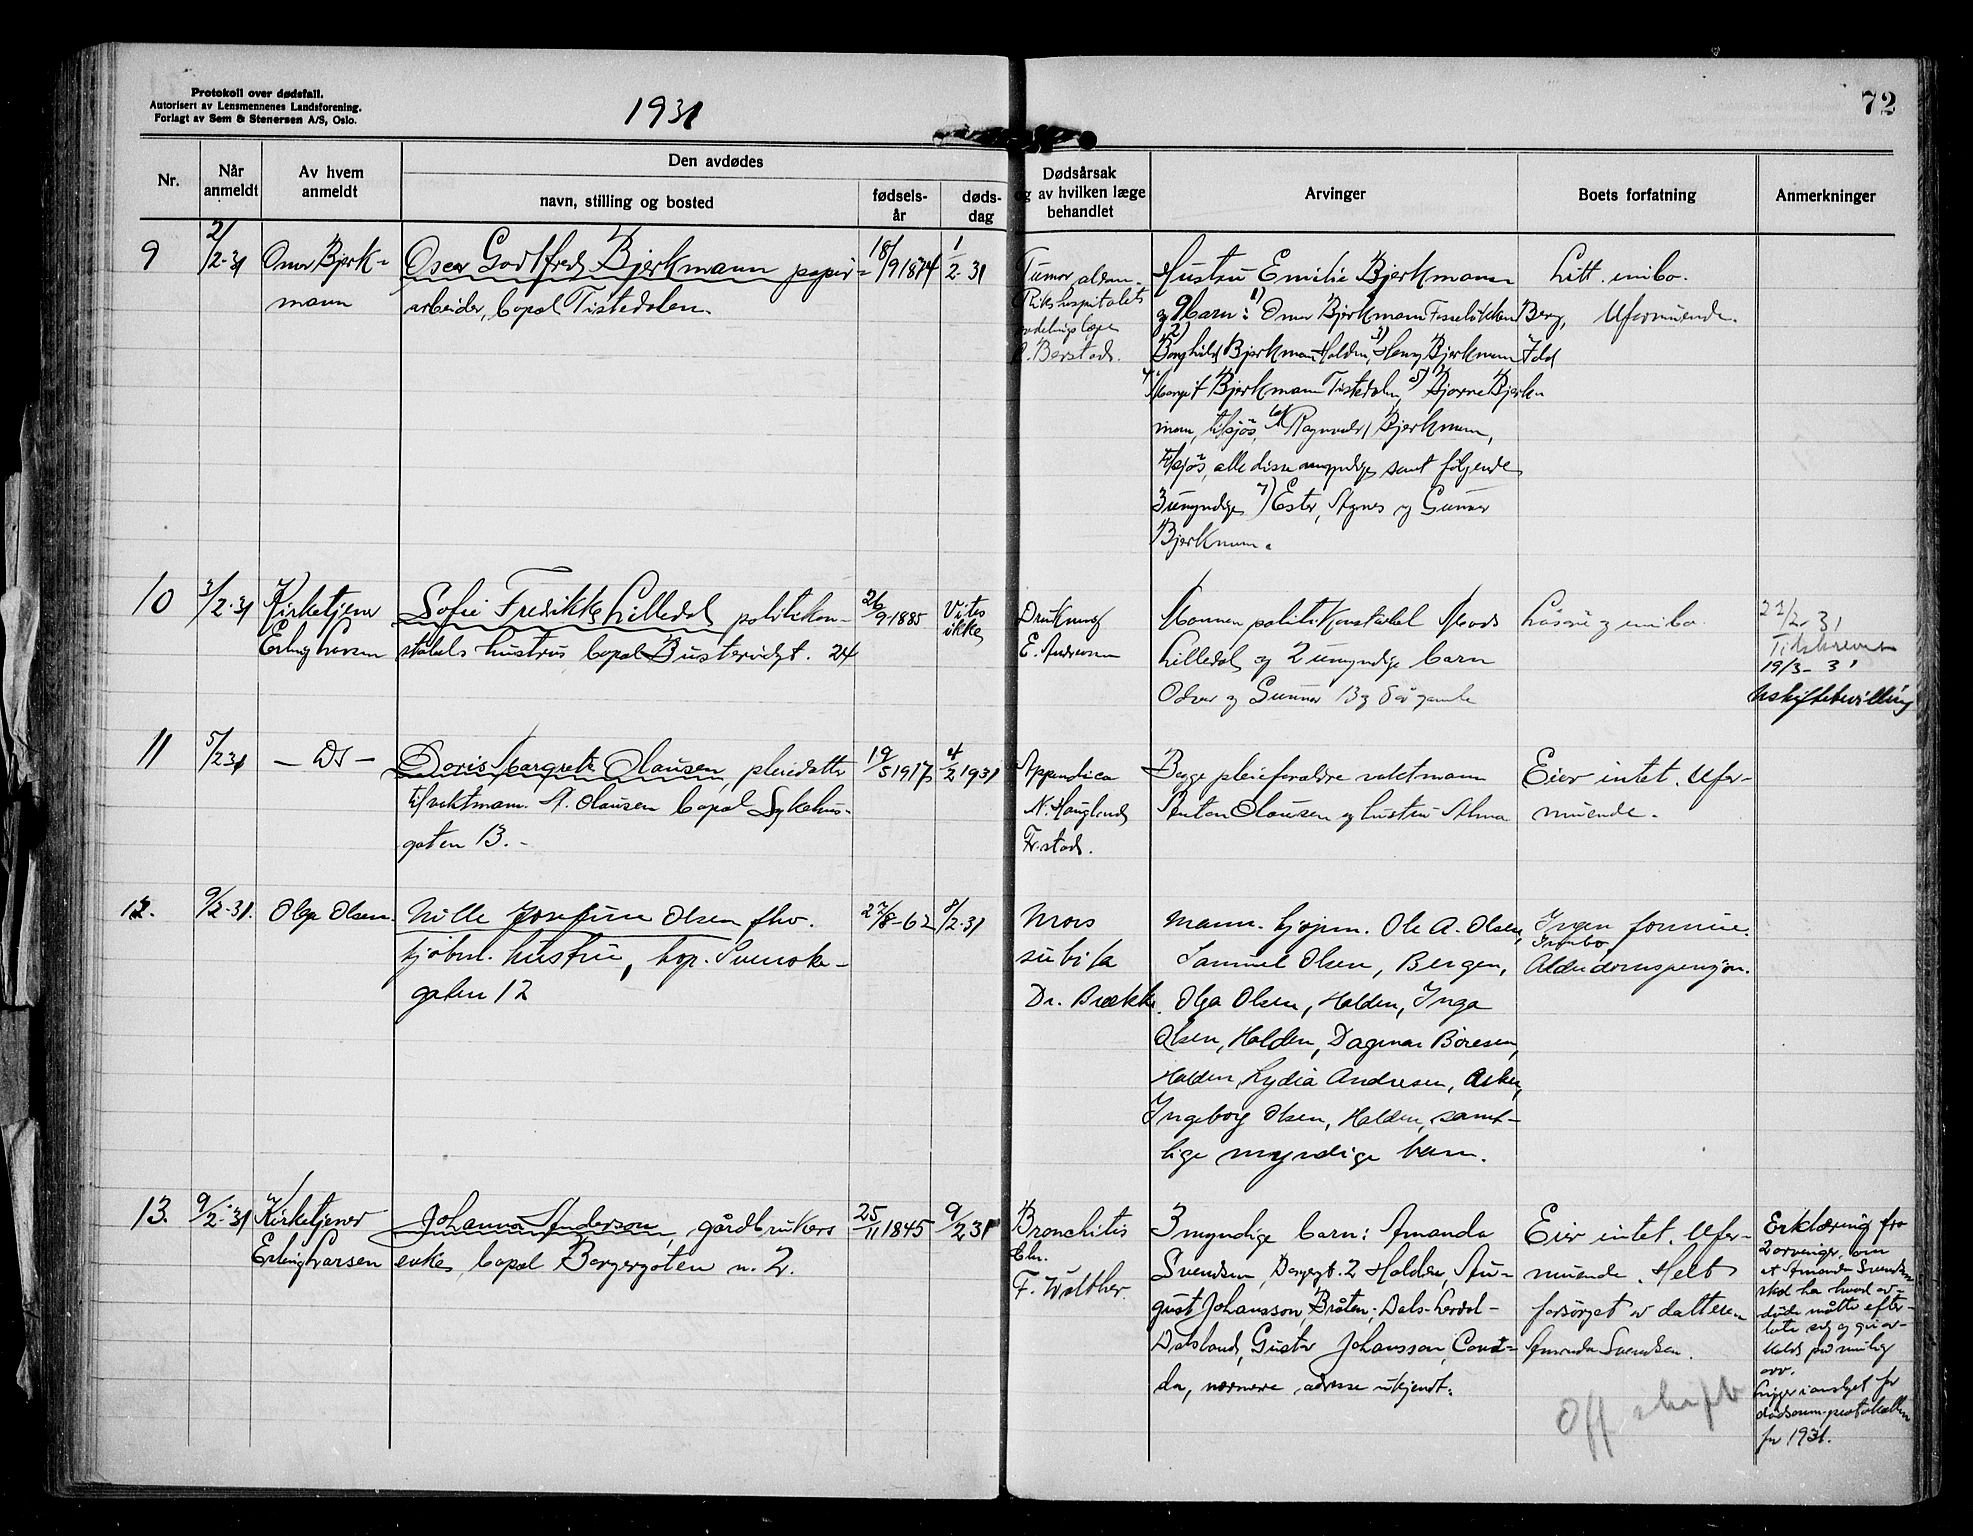 Protokoll over dødsfall.
Autorisert av Lensmennenes Landsforening.
Forlagt av Sem & Stenersen A/S, Oslo.
1931
72
Nr.
Når
anmeldt
Av hvem
anmeldt
Den avdødes
navn, stilling og bosted
fødsels-
år
døds-
dag
Dødsårsak
og av hvilken læge
behandlet
Arvinger
Boets forfatning
Anmerkninger
9
2/2-31
Omar Bjerk-
mann
Oscar Godtfred Bjerkmann papir-
arbeider, bopæl Tistedalen.
18/9 1874
1/2-31
Tumor
Rikshospitalets
avdelingslæge
Berstad.
Hustru Emilie Bjerkmann
og 9 barn: 1) Omar Bjerkmann Fosseløkken Berg,
2) Borghild Bjerkman Halden, 3) Henry Bjerkmann Idd
4) Margit Bjerkmann Tistedalen, 5) Bjarne Bjerk-
mann, tilsjøs, 6) Ragnvald Bjerkmann,
tilsjøs, alle disse myndige samt følgende
3 umyndige 7) Ester, Agnes og Gunnar
Bjerkmann.
Litt innbo.
Uformuende.
10
3/2-31
Kirketjener
Erling Larsen
Sofie Fredikke Lilledal politikon-
stabels hustru bopæl Busterudgt. 24
26/9-1885
Vites
ikke
Drukning
E. Andresen
Mannen politikonstabel Mads
Lilledal og 2 umyndige barn
Odvar og Gunnar 13 og 8 år gamle
Løsøre og innbo
22/2 31
Tilskrevet
19/3-31
Uskiftebevilling
11
5/2 31
— Ds —
Doris Margrete Olausen, pleiedatter
til vektmann A. Olausen bopæl Sykehus-
gaten 13.-
19/5 1917
4/2 1931
Appendica
N. Haugland
Fr.stad.
Begge pleieforeldre vektmann
Anton Olausen og hustru Alma
Eier intet. Ufor-
muende.
12.
9/2-31.
Olga Olsen.
Nille Josefine Olsen fhv.
kjøbm. hustru, bop. Svenske-
gaten 12
27/8-62
8/2-31
Mors
subita
Dr. Brække.
Mann. kjøpm. Ole A. Olsen,
Samuel Olsen, Bergen,
Olga Olsen, Halden, Inga
Olsen, Halden, Dagmar Børesen,
Halden, Lydia Andresen, Asker,
Ingeborg Olsen, Halden, samt-
lige myndige barn.
Ingen formue.
Innbo
Alderdomspensjon.
13.
9/2-31
Kirketjener
Erling Larsen
Johanna Anderson, gårdbrukers
enke, bopæl Borgergaten n. 2.
25/11 1845
9/2 31
Bronchitis
Chr.
F. Walther.
3 myndige barn: Amanda
Svendsen, Borgergt. 2 Halden, Au-
gust Johansson, Bråten, Dals-Lerdal-
Dalsland, Gustav Johansson, Cana-
da, nærmere adresse ukjendt.
Eier intet. Ufor-
muende. Helt
forsørget av datteren
Amanda Svendsen.
Off skifte
Erklæring fra
2 arvinger, om
at Amanda Svendsen
skal ha hvad av-
døde måtte efter-
late sig og gir av-
kald på mulig
arv.
Ligger i omslaget for
dødsanm.protokollen
for 1931.